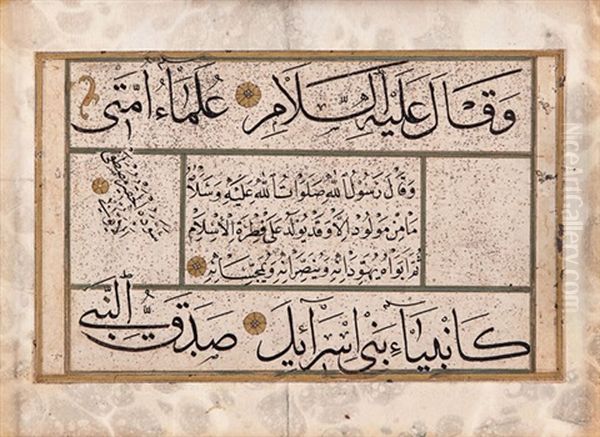 وَقَالَ عَلَيْهِ السَّلَامُ عُلَمَاءُ اُمَّتِى
وَقَالَ رَسُولُ اللهِ صَلَوَاتُ اللهِ عَلَيْهِ وَسَلَامُ
مَا مِنْ مَوْلُودٍ اِلَّا وَقَدْ يُولَدُ عَلَى فِطْرَةِ الْاِسْلَامِ
ثُمَّ اَبَوَاهُ يُهَوِّدَانِهِ وَيُنَصِّرَانِهِ وَيُمَجِّسَانِهِ
كَانْبِيَاءِ بَنِى اِسْرَائِيلَ صَدَقَ النَّبِىُّ
NiceArtGallery.com